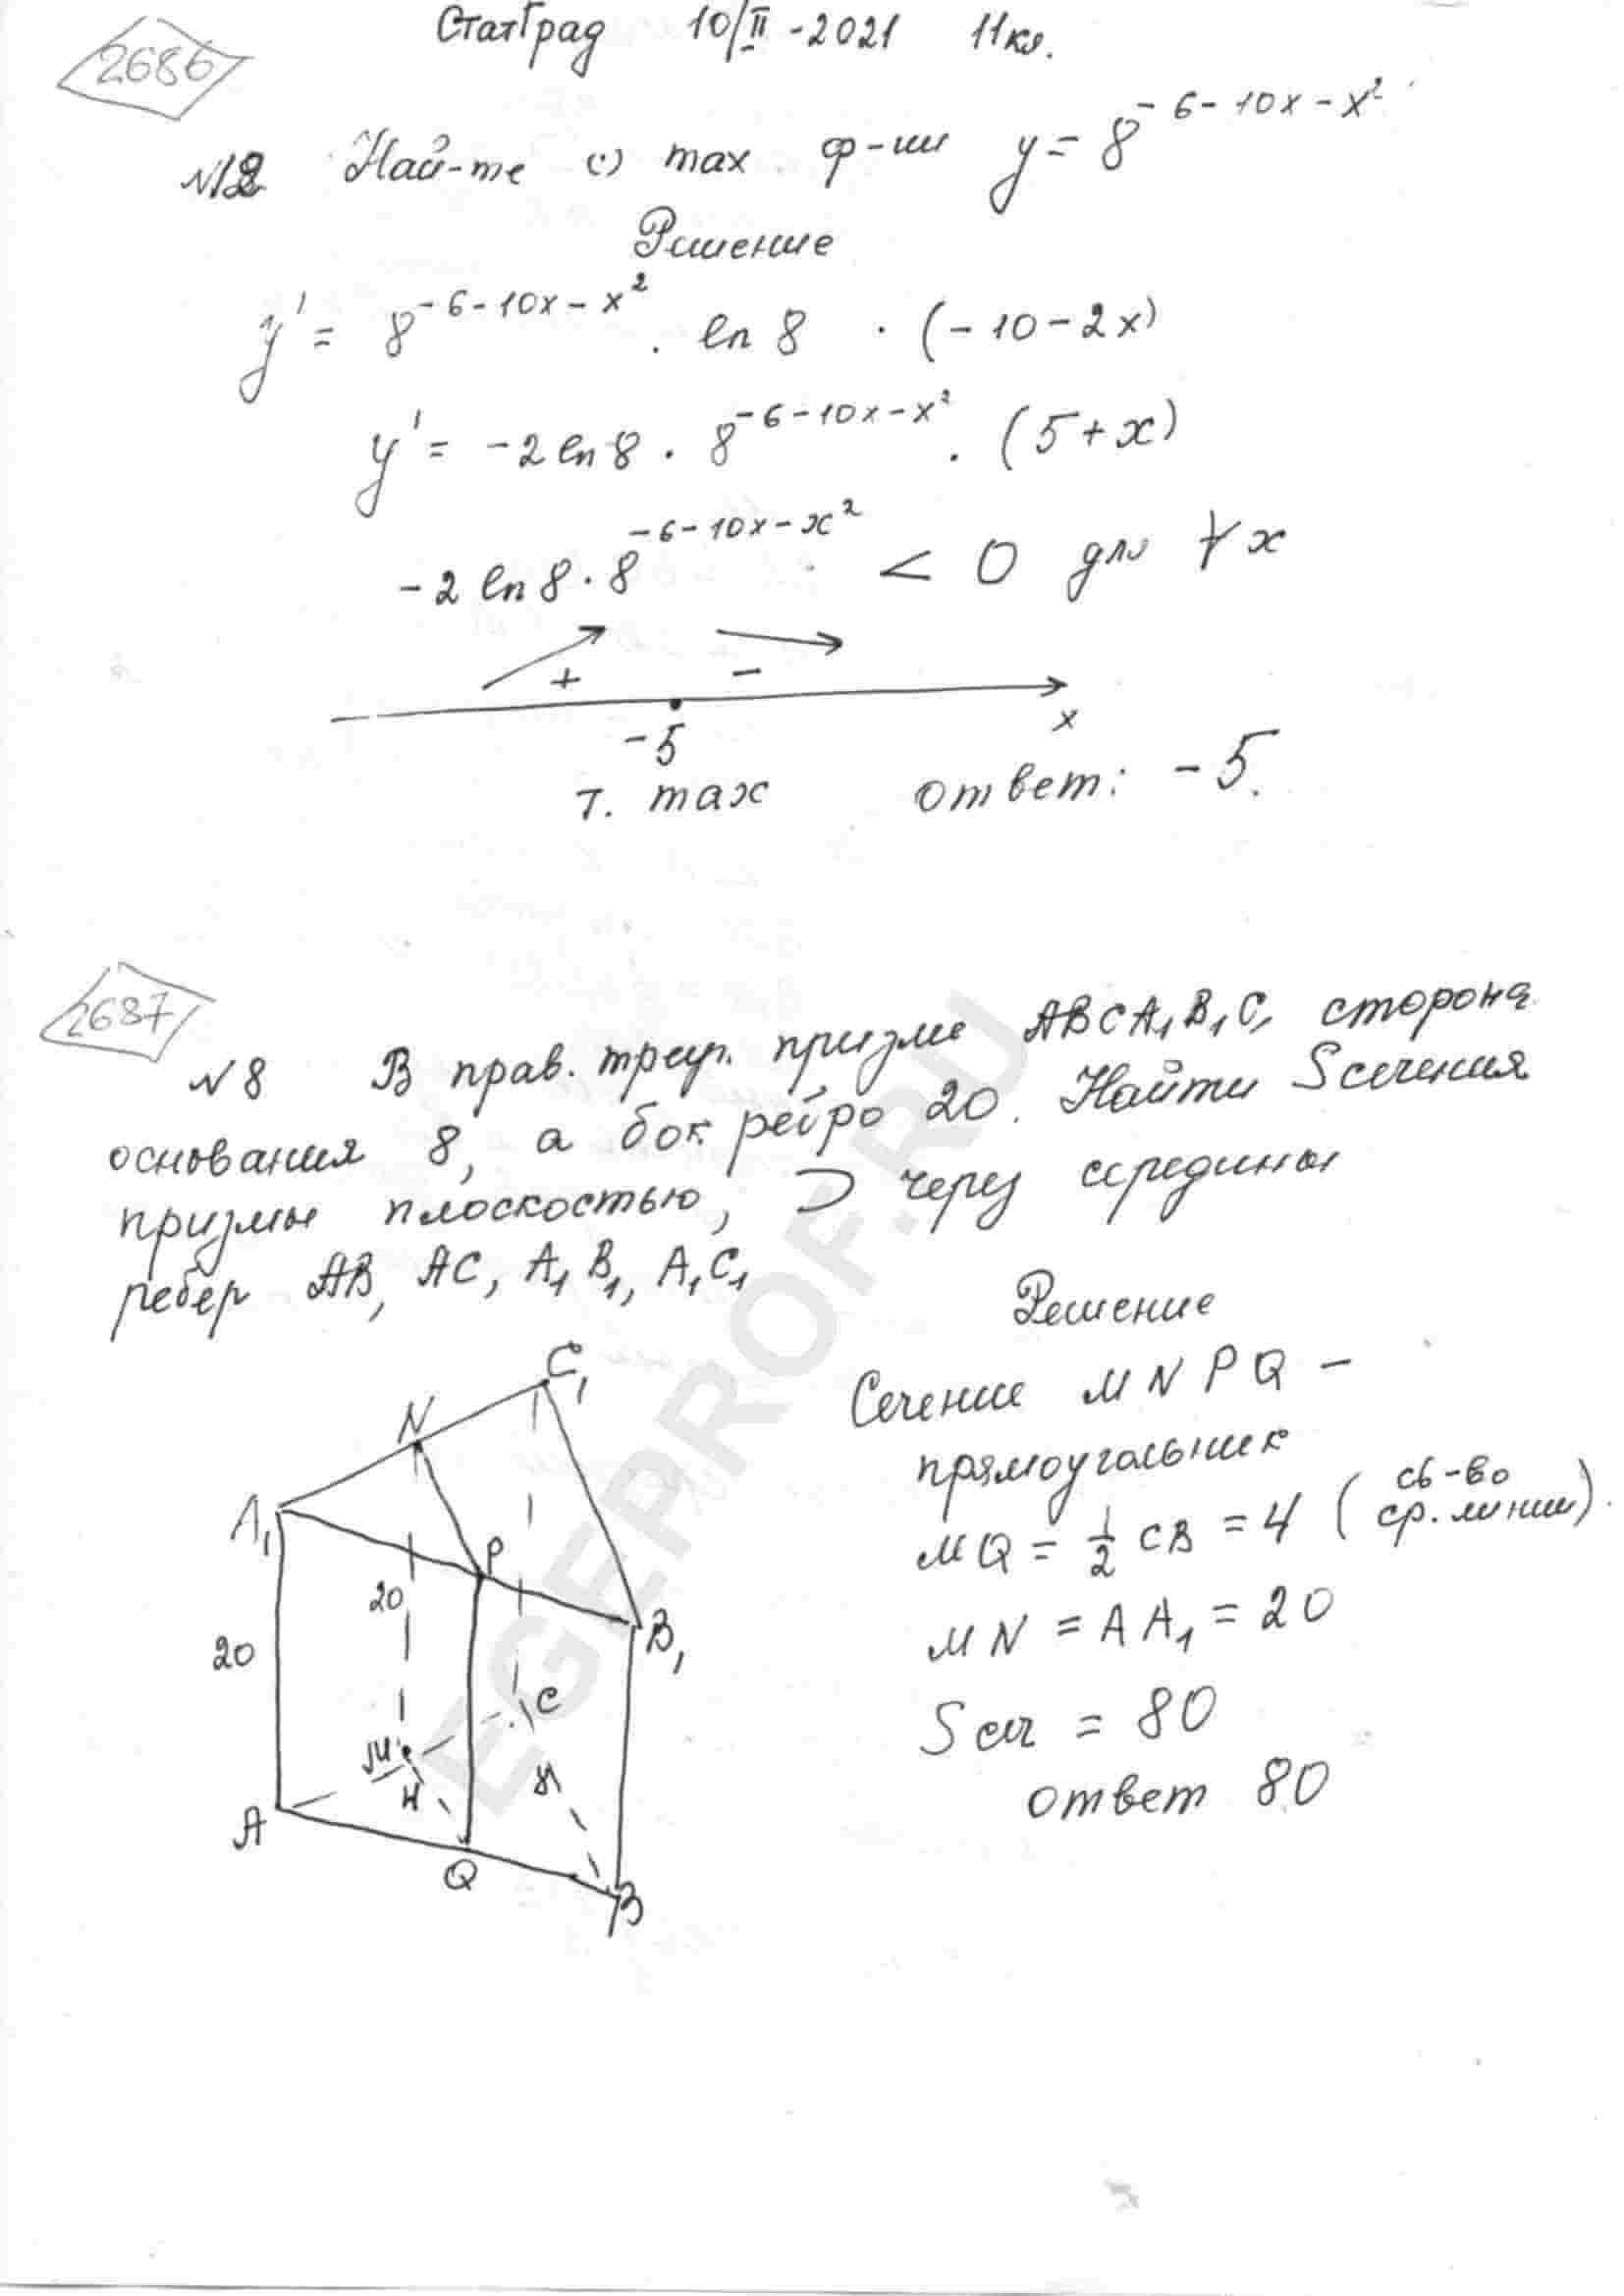 2686
СтатГрад 10/II-2021 11кл.
№12 Най-те (·) max ф-ии y = 8^{-6-10x-x^2}
Решение
y' = 8^{-6-10x-x^2} · ln 8 · (-10-2x)
y' = -2 ln 8 · 8^{-6-10x-x^2} · (5+x)
-2 ln 8 · 8^{-6-10x-x^2} < 0 для ∀ x
+ -
-5 x
т. max ответ: -5.
2687
№8 В прав. треуг. призме ABCA₁B₁C₁ сторона
основания 8, а бок. ребро 20. Найти S сечения
призмы плоскостью, ⊃ через середины
ребер AB, AC, A₁B₁, A₁C₁
Решение
Сечение MNPQ -
прямоугольник
MQ = 1/2 CB = 4 (св-во ср. линии).
MN = AA₁ = 20
S сеч = 80
ответ 80
C₁
N
A₁
P
20
B₁
20
C
M
4
8
A
Q
B
EGEPROF.RU